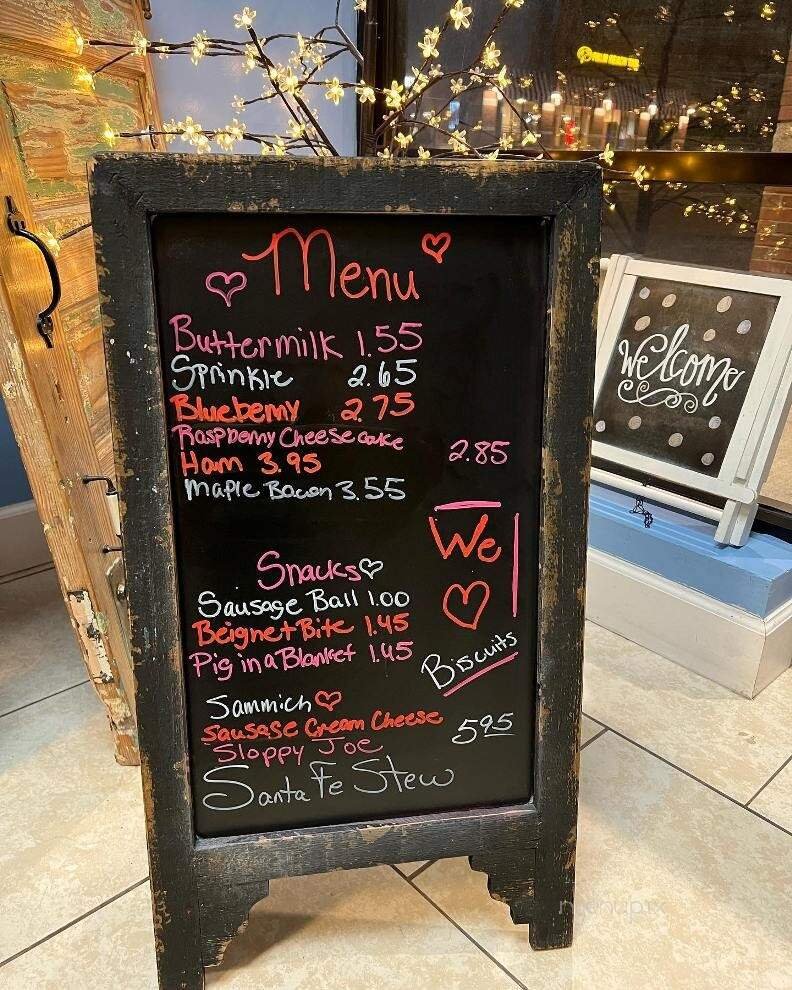 Menu
Buttermilk 1.55
Sprinkle 2.65
Blueberry 2.75
Raspberry Cheesecake 2.85
Ham 3.95
Maple Bacon 3.55
We
Snacks
Sausage Ball 1.00
Beignet Bite 1.45
Pig in a Blanket 1.45
Biscuits
Sammich
Sausage Cream Cheese 5.95
Sloppy Joe
Santa Fe Stew
Welcome
menupix